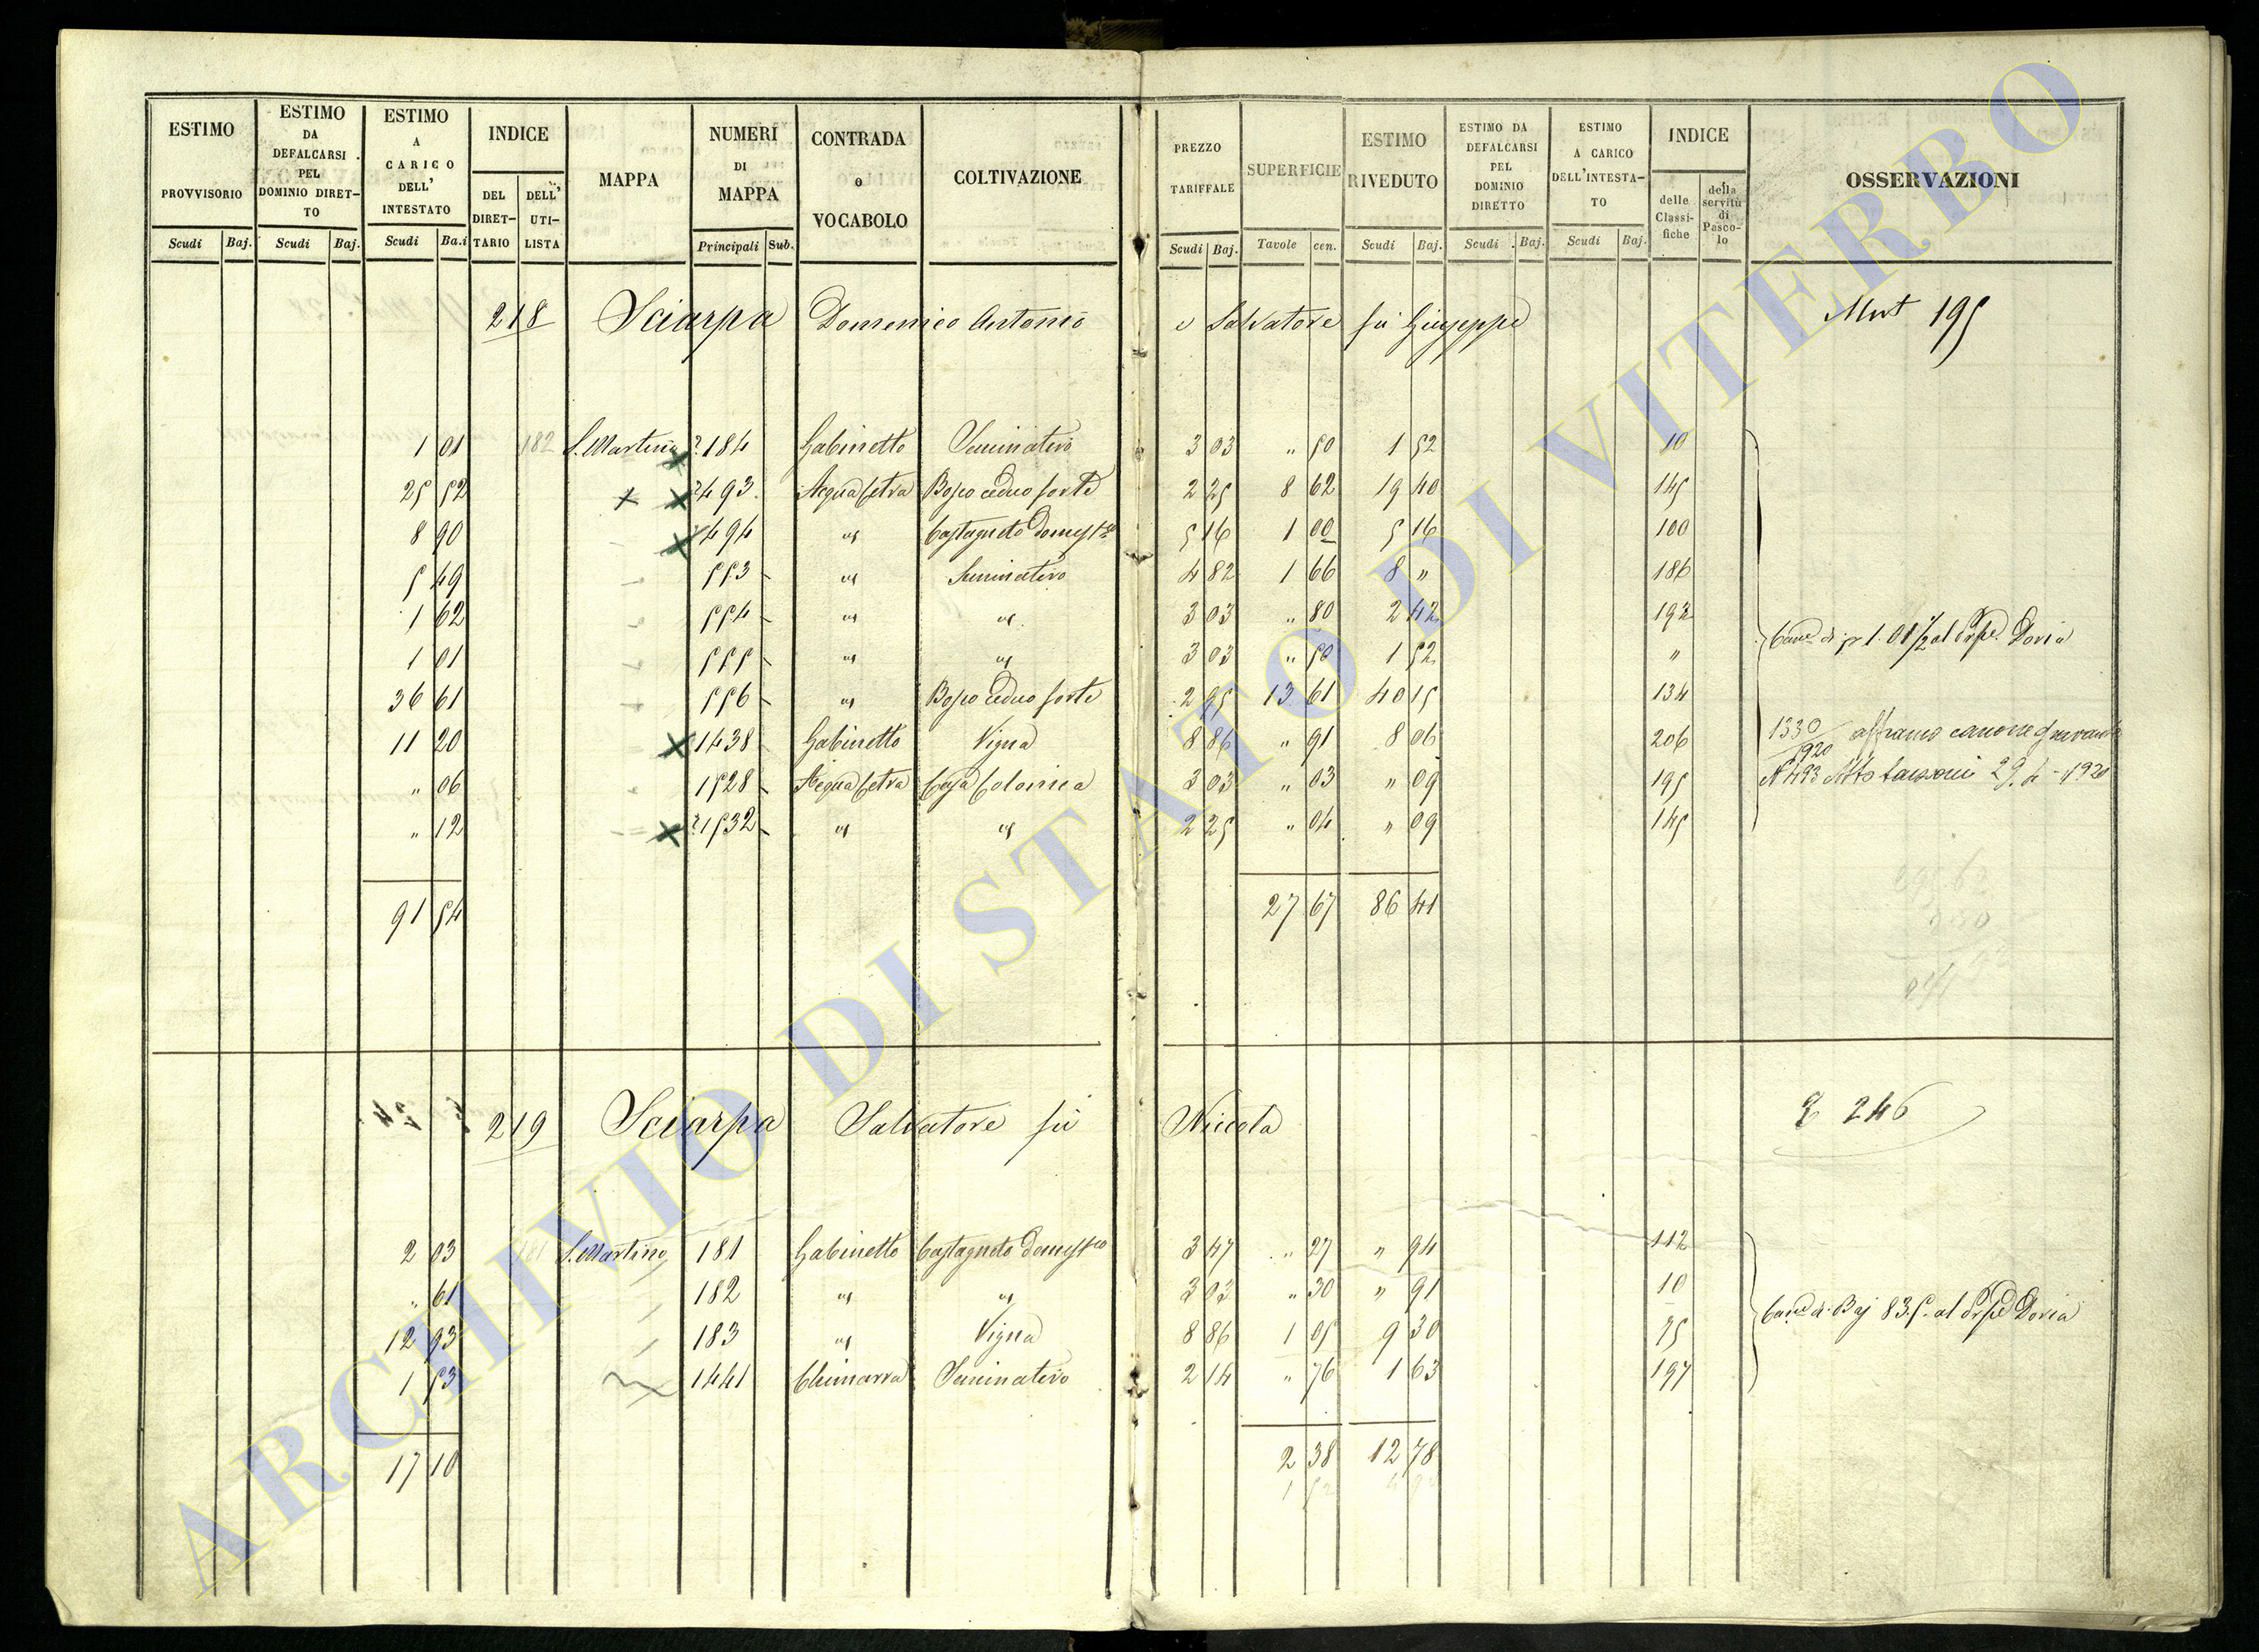 ESTIMO PROVVISORIO Scudi Baj.
ESTIMO DA DEFALCARSI PEL DOMINIO DIRET- TO Scudi Baj.
ESTIMO A CARICO DELL' INTESTATO Scudi Ba.i
INDICE DEL DIRET- TARIO DELL' UTI- LISTA
MAPPA
NUMERI DI MAPPA Principali Sub.
CONTRADA O VOCABOLO
COLTIVAZIONE
PREZZO TARIFFALE Scudi Baj.
SUPERFICIE Tavole cen.
ESTIMO RIVEDUTO Scudi Baj.
ESTIMO DA DEFALCARSI PEL DOMINIO DIRETTO Scudi Baj.
ESTIMO A CARICO DELL'INTESTA- TO Scudi Baj.
INDICE delle Classi- fiche della servitù di Pasco- lo
OSSERVAZIONI
218 Sciarpa Domenico Antonio e Salvatore fu Giuseppe 195
1 01 182 S. Martino 184 Gabinetto Seminativo 3 03 " 50 1 52 10
25 52 493 Acqua Cetra Bosco ceduo forte 2 25 8 62 19 40 145
8 90 494 " Castagneto Domestco 5 16 1 00 5 16 100
5 49 553 " Seminativo 4 82 1 66 8 " 186
1 62 554 " " 3 03 " 80 2 42 192
1 01 555 " " 3 03 " 50 1 52 "
36 61 556 " Bosco ceduo forte 2 95 13 61 40 15 134
11 20 1438 Gabinetto Vigna 8 86 " 91 8 06 206
" 06 1528 Acqua Cetra Casa Colonica 3 03 " 03 " 09 195
" 12 1532 " " 2 25 " 04 " 09 145
1.01 1/2 al Doria
1330/920 affranco canone gravante
N 493 Atto 29.4-1920
91 54 27 67 86 41
219 Sciarpa Salvatore fu Nicola 246
2 03 181 S. Martino 181 Gabinetto Castagneto Domestco 3 47 " 27 " 94 112
" 61 182 " " 3 03 " 30 " 91 10
12 93 183 " Vigna 8 86 1 05 9 30 75
1 53 1441 Chimarra Seminativo 2 14 " 76 1 63 197
di Baj 83.5. al Doria
17 10 2 38 12 78
ARCHIVIO DI STATO DI VITERBO